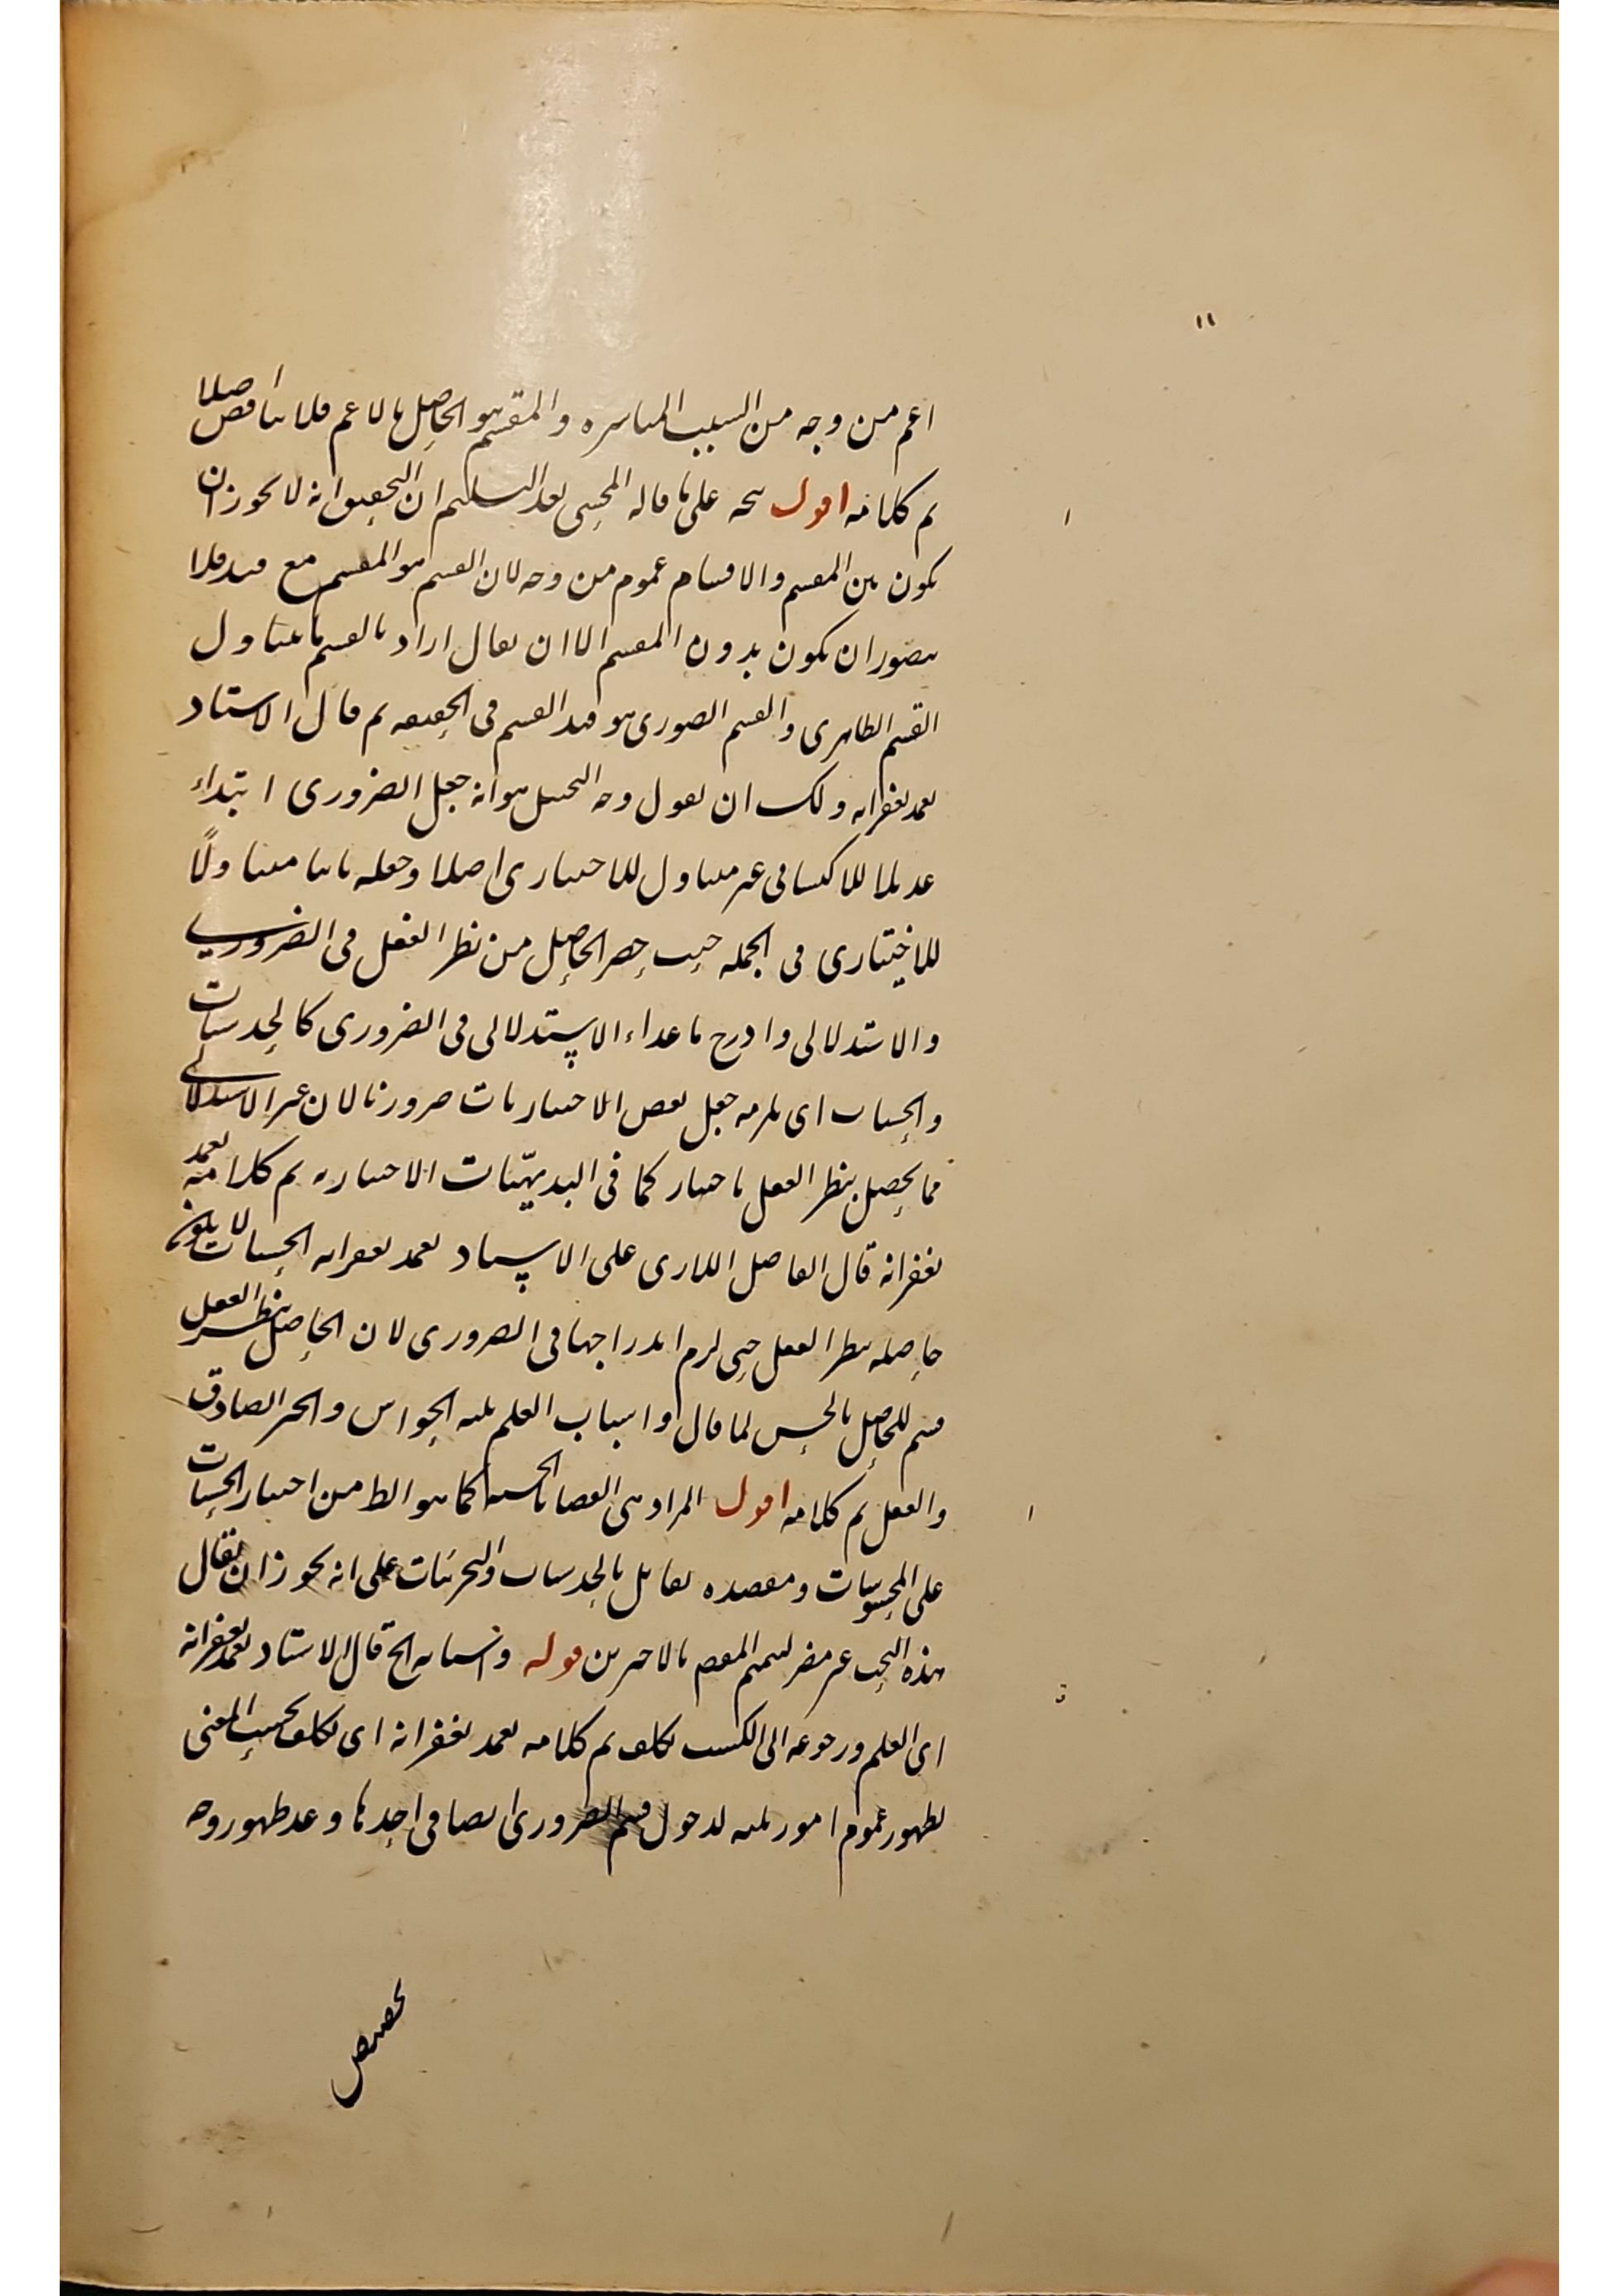 ١١
اعم من وجه من السبب المباشره والمقسم هو الحاصل بالاعم فلا تناقض اصلا
تم كلامه اقول يتجه على ما قاله المحشى بعد التسليم ان التحقيق انه لا يجوز ان
يكون بين المقسم والاقسام عموم من وجه لان القسم هو المقسم مع قيد فلا
يتصور ان يكون بدون المقسم الا ان يقال اراد بالقسم ما يتناول
القسم الظاهرى والقسم الصورى هو قيد القسم فى الحقيقه ثم قال الاستاد
تغمد بغفرانه ولك ان تقول وجه التخيل هو انه جعل الضرورى ابتداء
عديلا للاكتسابى غير متناول للاختيارى اصلا وجعله ثانيا متناولًا
للاختيارى فى الجمله حيث حصر الحاصل من نظر العقل فى الضرورى
والاستدلالى وادرج ماعداء الاستدلالى فى الضرورى كالحدسيات
والحسيات اى يلزمه جعل بعض الاختياريات ضروريا لان غير الاستدلالى
مما يحصل بنظر العقل باختيار كما فى البديهيّات الاختياريه تم كلامه تغمد
بغفرانه قال الفاضل اللارى على الاستاد تغمد بغفرانه الحسيات لا يكون
حاصله بنظر العقل حتى لزم اندراجها فى الضرورى لان الحاصل بنظر العقل
قسم للحاصل بالحس لما قال واسباب العلم ثلثه الحواس والخبر الصادق
والعقل تم كلامه اقول المراد هى القضايا الحسيه كما هو الظ من اختيار الحسيات
على المحسوسات ومقصده تقابل بالحدسيات والتجربيات على انه يجوز ان يقال
هذه البحث غير مضر لتتميم المقصم بالاخرين قوله وانسابه الخ قال الاستاد تغمد بغفرانه
اى العلم ورجوعه الى الكسب تكلف تم كلامه تغمد بغفرانه اى تكلف بحسب المعنى
لظهور عموم امور ثلثه لدخول قسم الضرورى ايضا فى احدها وعد ظهور وجه
تخصيص